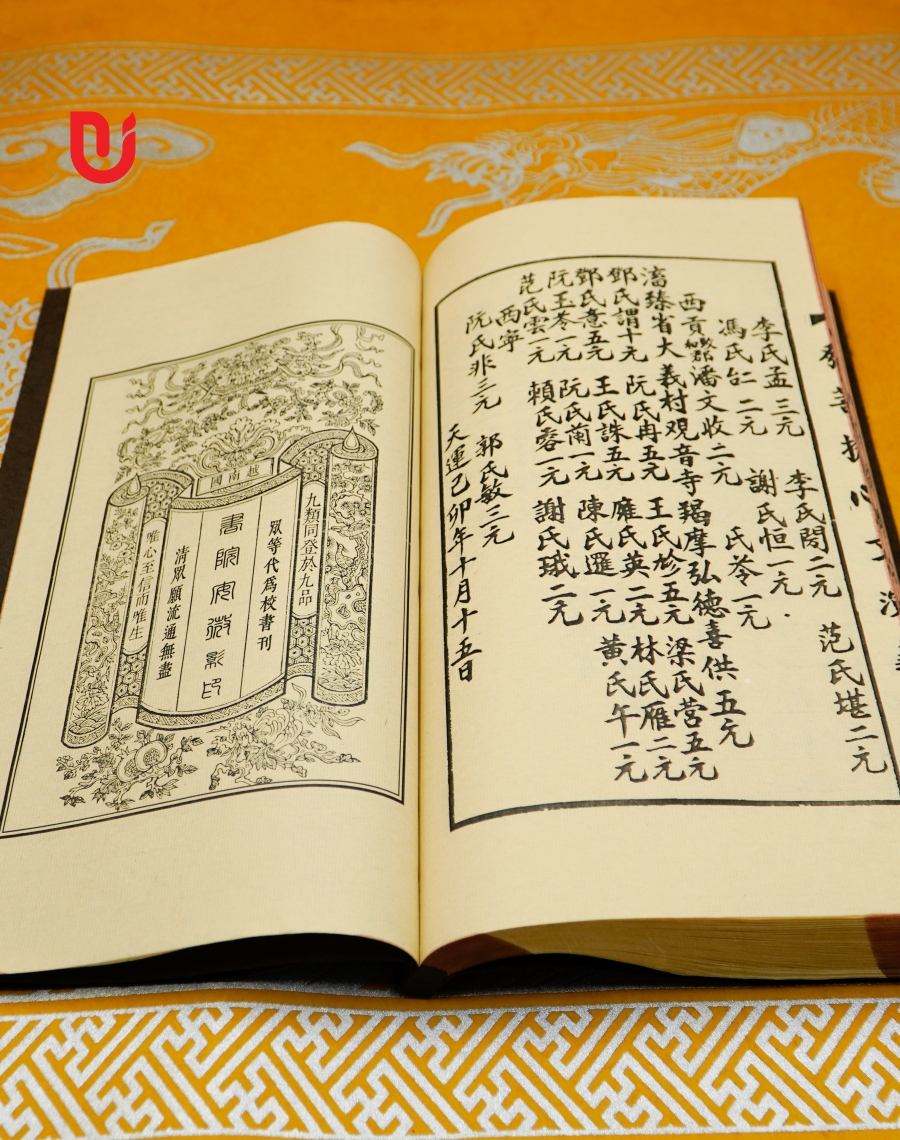 李氏孟三元 李氏閔二元 范氏堪二元
馮氏 二元 謝氏恒一元
西貢 潘文收二元 氏苓一元
滀臻省大義村观音寺羯摩弘德喜供五元
鄧氏謂十元 阮氏冉五元 王氏 五元 梁氏营五元
鄧氏意五元 王氏誅五元 龐氏英二元 林氏雁二元
阮玉苓一元 阮氏蘭一元 陳氏暹一元 黃氏午一元
范氏雲一元 賴氏蓉一元 謝氏珴二元
西寧
阮氏非三元 郭氏敏三元
天運己卯年十月十五日
越南國
九類同登於九品
眾等代爲校書刊
書院 影印
清眾願流通無盡
唯心至信而唯生